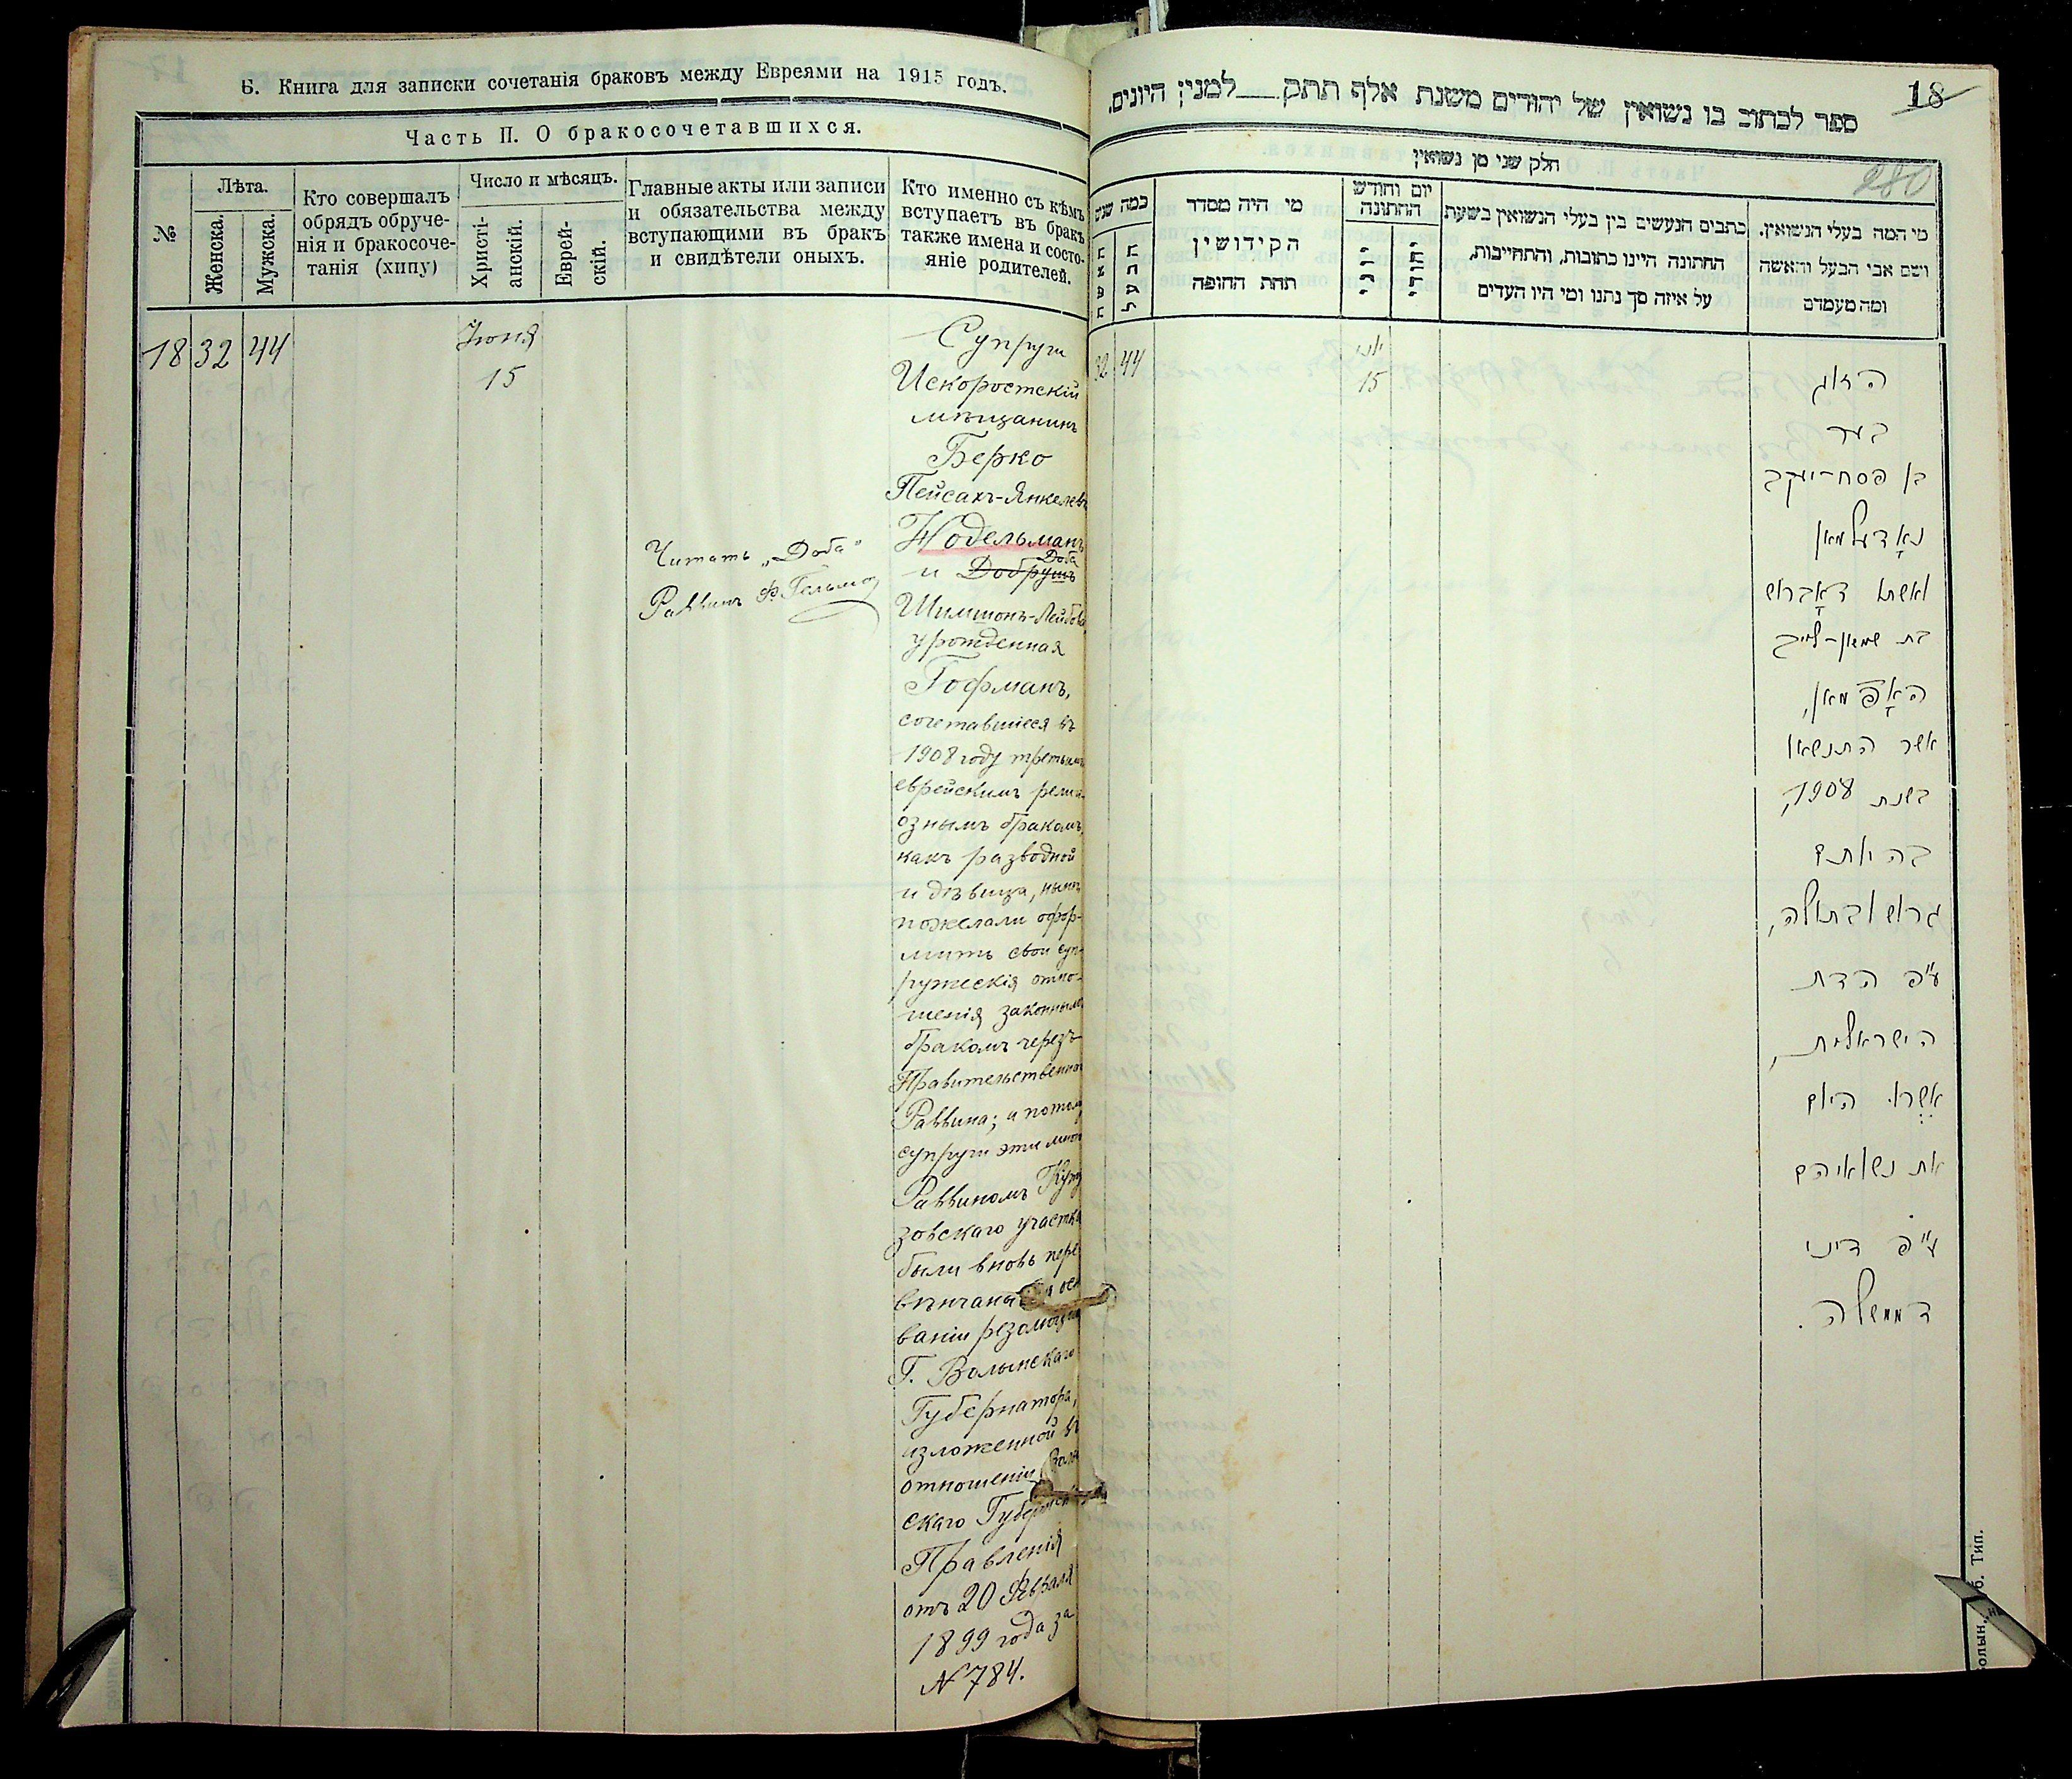 6. Книга для записки сочетанія браковъ между Евреями на 1915 годъ.
Часть II. О бракосочетавшихся.
№
Лѣта.
Женска.
Мужска.
Кто совершалъ
обрядъ обруче-
нія и бракосоче-
танія (хипу)
Число и мѣсяцъ.
Христі-
анскій.
Еврей-
скій.
Главные акты или записи
и обязательства между
вступающими въ бракъ
и свидѣтели оныхъ.
Кто именно съ кѣмъ
вступаетъ въ бракъ
также имена и состо-
яніе родителей.
18
32
44
Іюня
15
Читать „Доба"
Раввинъ
Супруги
Искоростскій
мѣщанинъ
Берко
Пейсахъ-Янкелевъ
Нодельманъ
Доба
и Добрушъ
Шимшонъ-Лейбова
урожденная
Гофманъ,
сочетавшіеся въ
1908 году третьимъ
еврейскимъ религі-
ознымъ бракомъ,
какъ разводной
и дѣвица, нынѣ
пожелали офор-
мить свои суп-
ружескія отно-
шенія законнымъ
бракомъ черезъ
Правительственнаго
Раввина; а потому
супруги эти мною
Раввиномъ
зовскаго участка
были вновь пере-
вѣнчаны осн
ваніи резолюціи
Г. Волынскаго
Губернатора,
изложенной въ
отношеніи Волын
скаго Губернск
Правленія
отъ 20 Февраля
1899 года за
№ 784.
18
280
ספר לכתוב בו נשואין של יהודים משנת אלף תתק למנין היונים.
חלק שני מן נשואין
כמה שנים
האשה
הבעל
מי היה מסדר
הקידושין
תחת החופה
יום וחודש
החתונה
כתבים הנעשים בין בעלי הנשואין בשעת
החתונה היינו כתובות, והתחייבות,
על איזה סך נתנו ומי היו העדים
מי המה בעלי הנשואין.
ושם אבי הבעל והאשה
ומה מעמדם
32
44
יוני
15
הזוג
בער
בן פסח-יעקב
נאָדעלמאן
ואשתו דאָברוש
בת שמשון-לייב
האָפמאן,
אשר התנשאו
בשנת 1908,
בהיותם
גרוש ובתולה,
ע"פ הדת
הישראלית,
אשרו היום
את נשואיהם
ע"פ דיני
הממשלה.
олын. б. Тип.